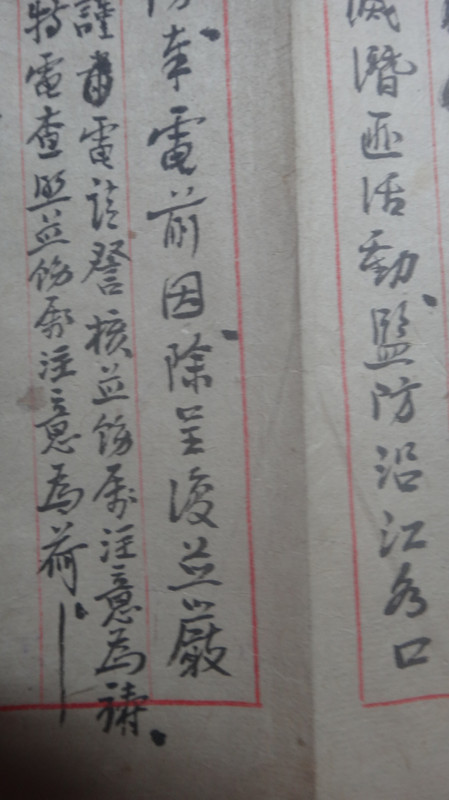 滅潛匪活動監防沿江各口
奉電前因除呈復並嚴
謹肅電請詧核並飭屬注意為禱
特電查照並飭屬注意為荷